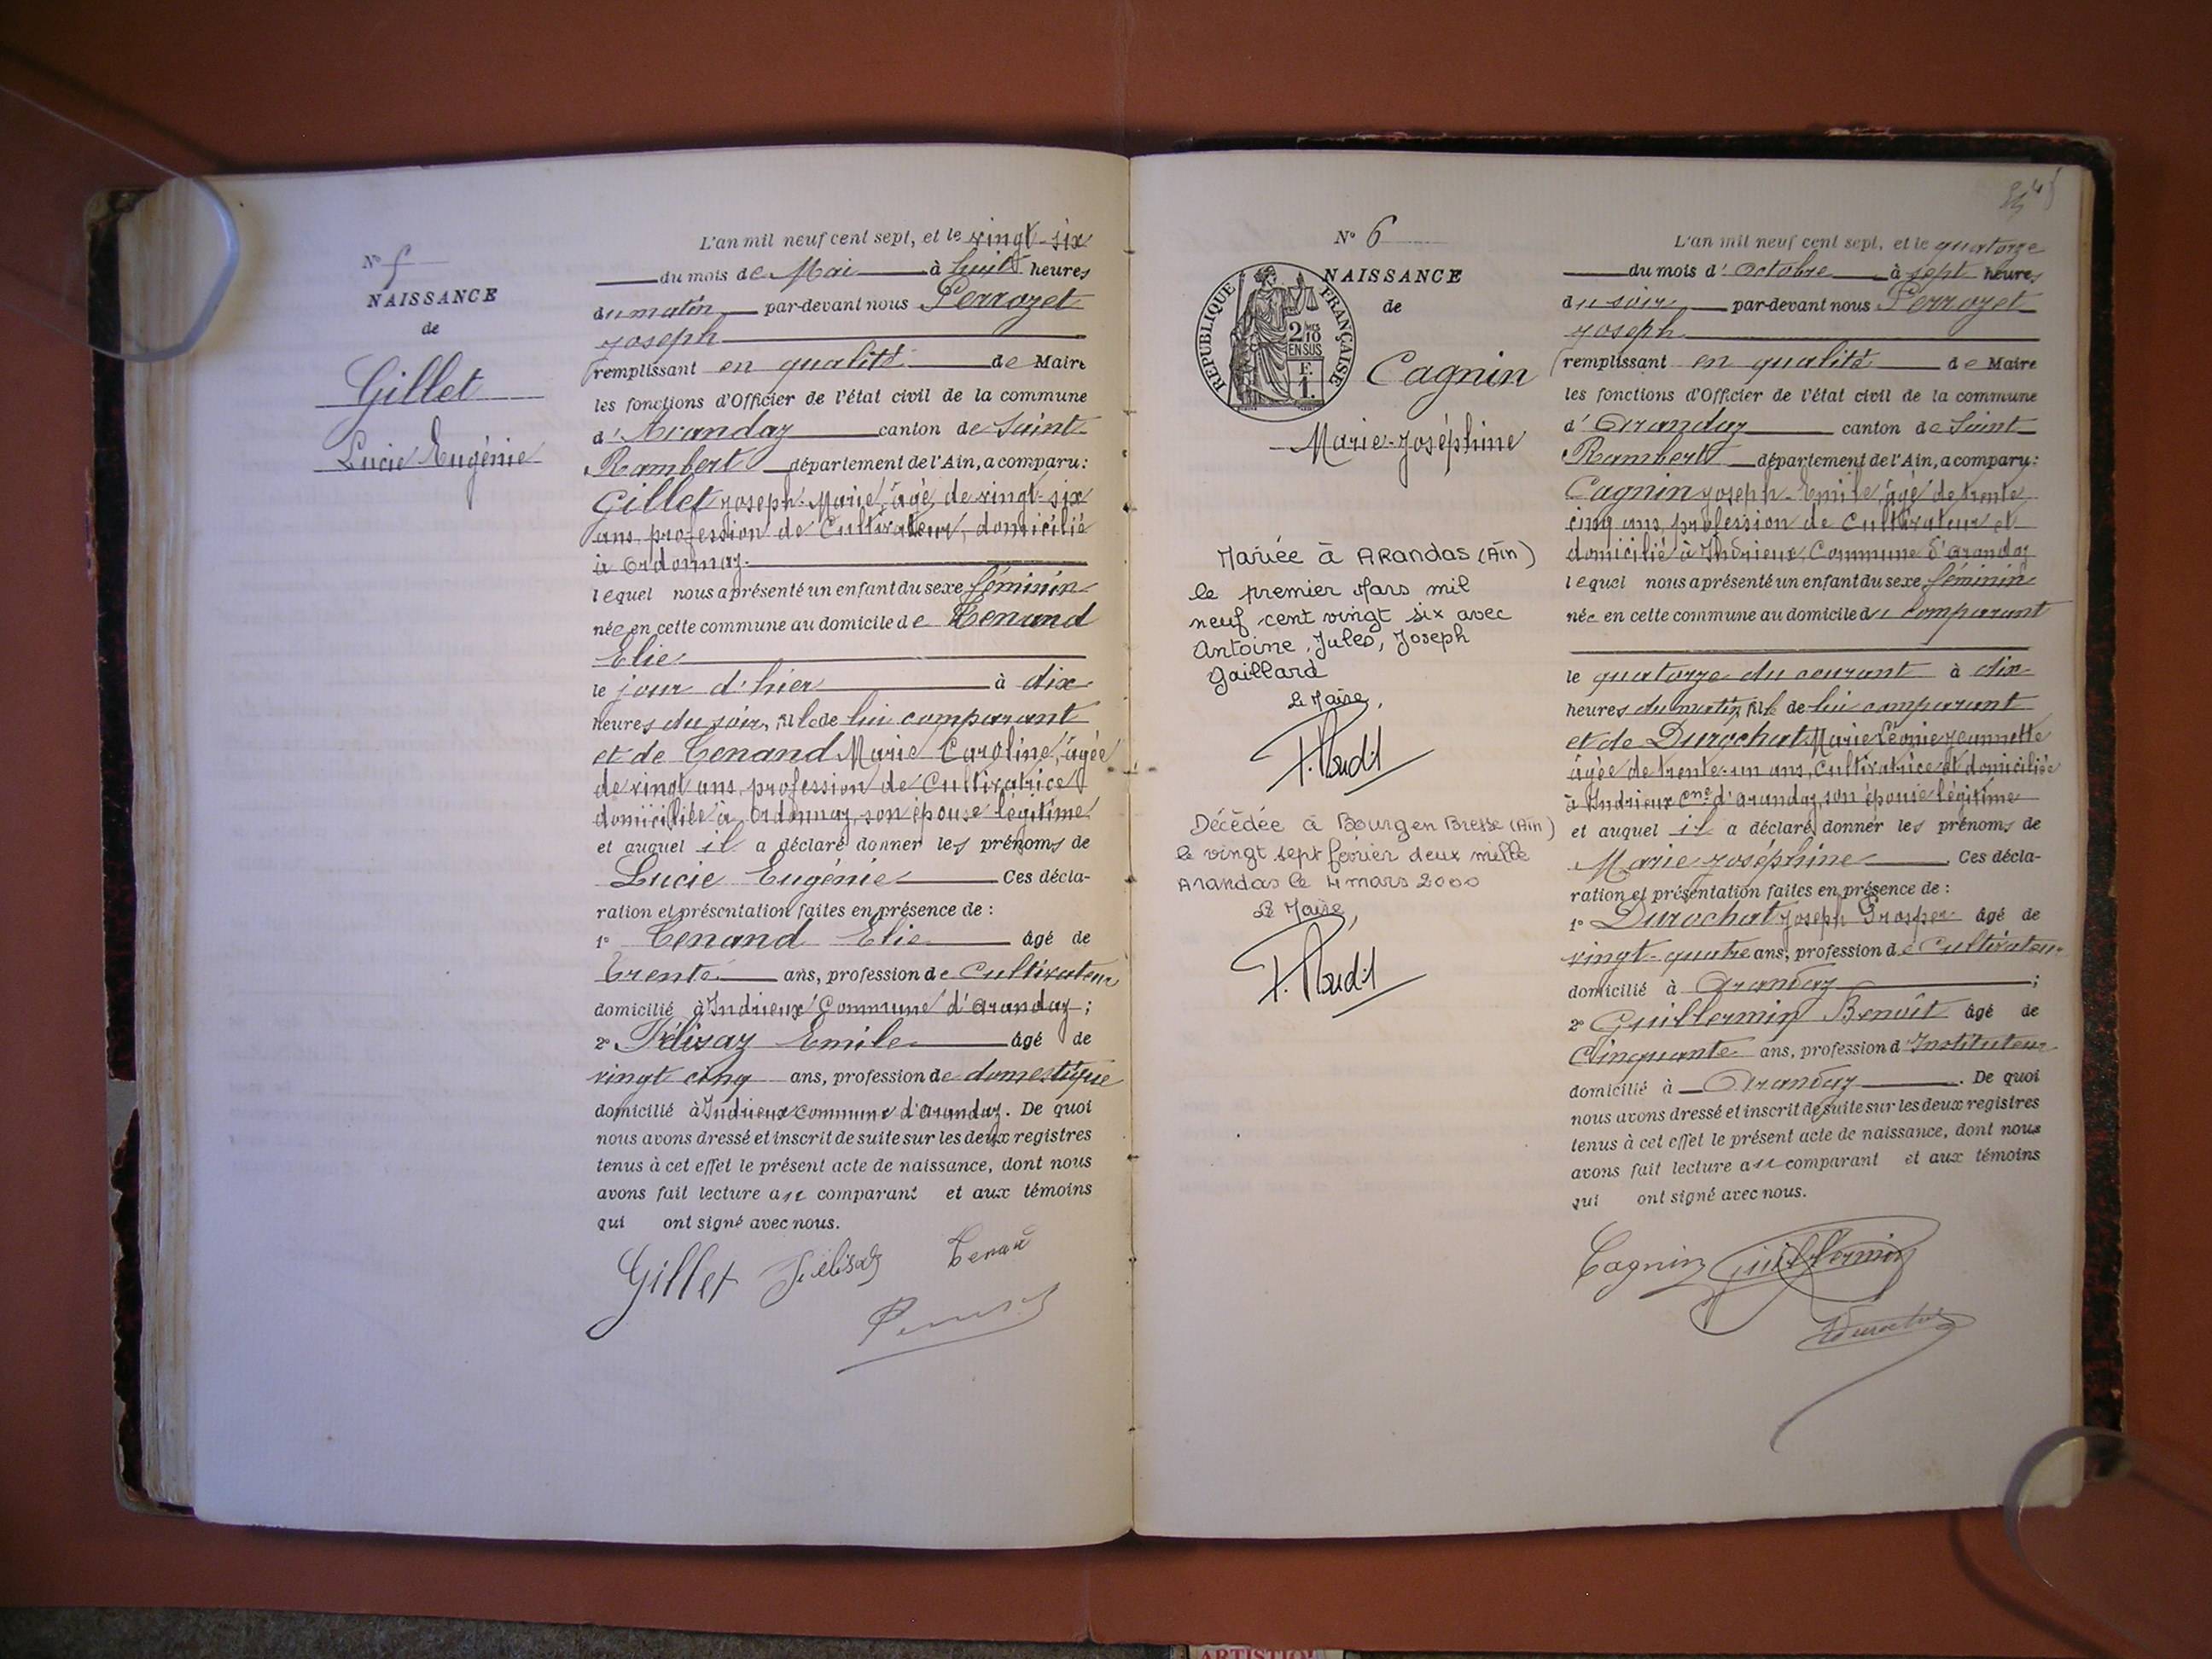 N° 5
NAISSANCE
de
Gillet
Lucie Eugénie
L'an mil neuf cent sept, et le vingt-six
du mois de Mai à huit heures
du matin par-devant nous Perrozet
Joseph
remplissant en qualité de Maire
les fonctions d'Officier de l'état civil de la commune
d'Arandaz canton de Saint
Rambert département de l'Ain, a comparu :
Gillet Joseph-Marie, âgé de vingt-six
ans, profession de Cultivateur, domicilié
à Ordonnaz.
lequel nous a présenté un enfant du sexe féminin
née en cette commune au domicile de Tenand
Elie
le jour d'hier à dix
heures du soir, fille de lui comparant
et de Tenand Marie Caroline, âgée
de vingt ans, profession de Cultivatrice
domiciliée à Ordonnaz, son épouse légitime
et auquel il a déclaré donner les prénoms de
Lucie Eugénie Ces décla-
ration et présentation faites en présence de :
1° Tenand Elie âgé de
trente ans, profession de Cultivateur
domicilié à Indrieux Commune d'Arandaz ;
2° Félisaz Emile âgé de
vingt cinq ans, profession de domestique
domicilié à Indrieux commune d'Arandaz. De quoi
nous avons dressé et inscrit de suite sur les deux registres
tenus à cet effet le présent acte de naissance, dont nous
avons fait lecture au comparant et aux témoins
qui ont signé avec nous.
Gillet Félisaz Tenand
N° 6
NAISSANCE
de
REPUBLIQUE FRANÇAISE
2/10 MES
EN SUS
F.
1.
Cagnin
Marie-Joséphine
Mariée à ARandas (Ain)
le premier Mars mil
neuf cent vingt six avec
Antoine, Jules, Joseph
Gaillard
Le Maire,
Décédée à Bourg en Bresse (Ain)
le vingt sept février deux mille
Arandas le 4 mars 2000
Le Maire,
L'an mil neuf cent sept, et le quatorze
du mois d'Octobre à sept heures
du soir par-devant nous Perrozet
Joseph
remplissant en qualité de Maire
les fonctions d'Officier de l'état civil de la commune
d'Arandaz canton de Saint
Rambert département de l'Ain, a comparu :
Cagnin Joseph-Emile, âgé de trente
cinq ans, profession de Cultivateur et
domicilié à Indrieux, Commune d'Arandaz
lequel nous a présenté un enfant du sexe féminin
née en cette commune au domicile du comparant
le quatorze du courant à dix
heures du matin, fille de lui comparant
et de Durochat Marie Léonie Jeannette
âgée de trente-un ans, Cultivatrice et domiciliée
à Indrieux Cne d'Arandaz, son épouse légitime
et auquel il a déclaré donner les prénoms de
Marie Joséphine Ces décla-
ration et présentation faites en présence de :
1° Durochat Joseph Prosper âgé de
vingt-quatre ans, profession de Cultivateur
domicilié à Arandaz ;
2° Guillermin Benoît âgé de
Cinquante ans, profession d'Instituteur
domicilié à Arandaz. De quoi
nous avons dressé et inscrit de suite sur les deux registres
tenus à cet effet le présent acte de naissance, dont nous
avons fait lecture au comparant et aux témoins
qui ont signé avec nous.
Cagnin Guillermin
Durochat